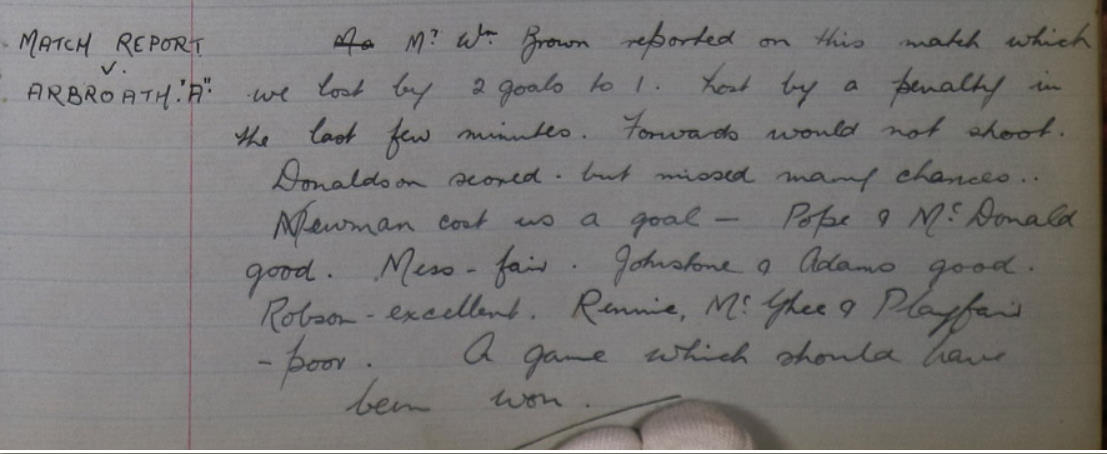 MATCH REPORT
v.
ARBROATH. "A".
Mr Wm Brown reported on this match which
we lost by 2 goals to 1. Lost by a penalty in
the last few minutes. Forwards would not shoot.
Donaldson scored. but missed many chances..
Newman cost us a goal — Pope & Mc Donald
good. Mess - fair. Johnstone & Adams good.
Robson - excellent. Rennie, Mc Ghee & Playfair
- poor. A game which should have
been won.